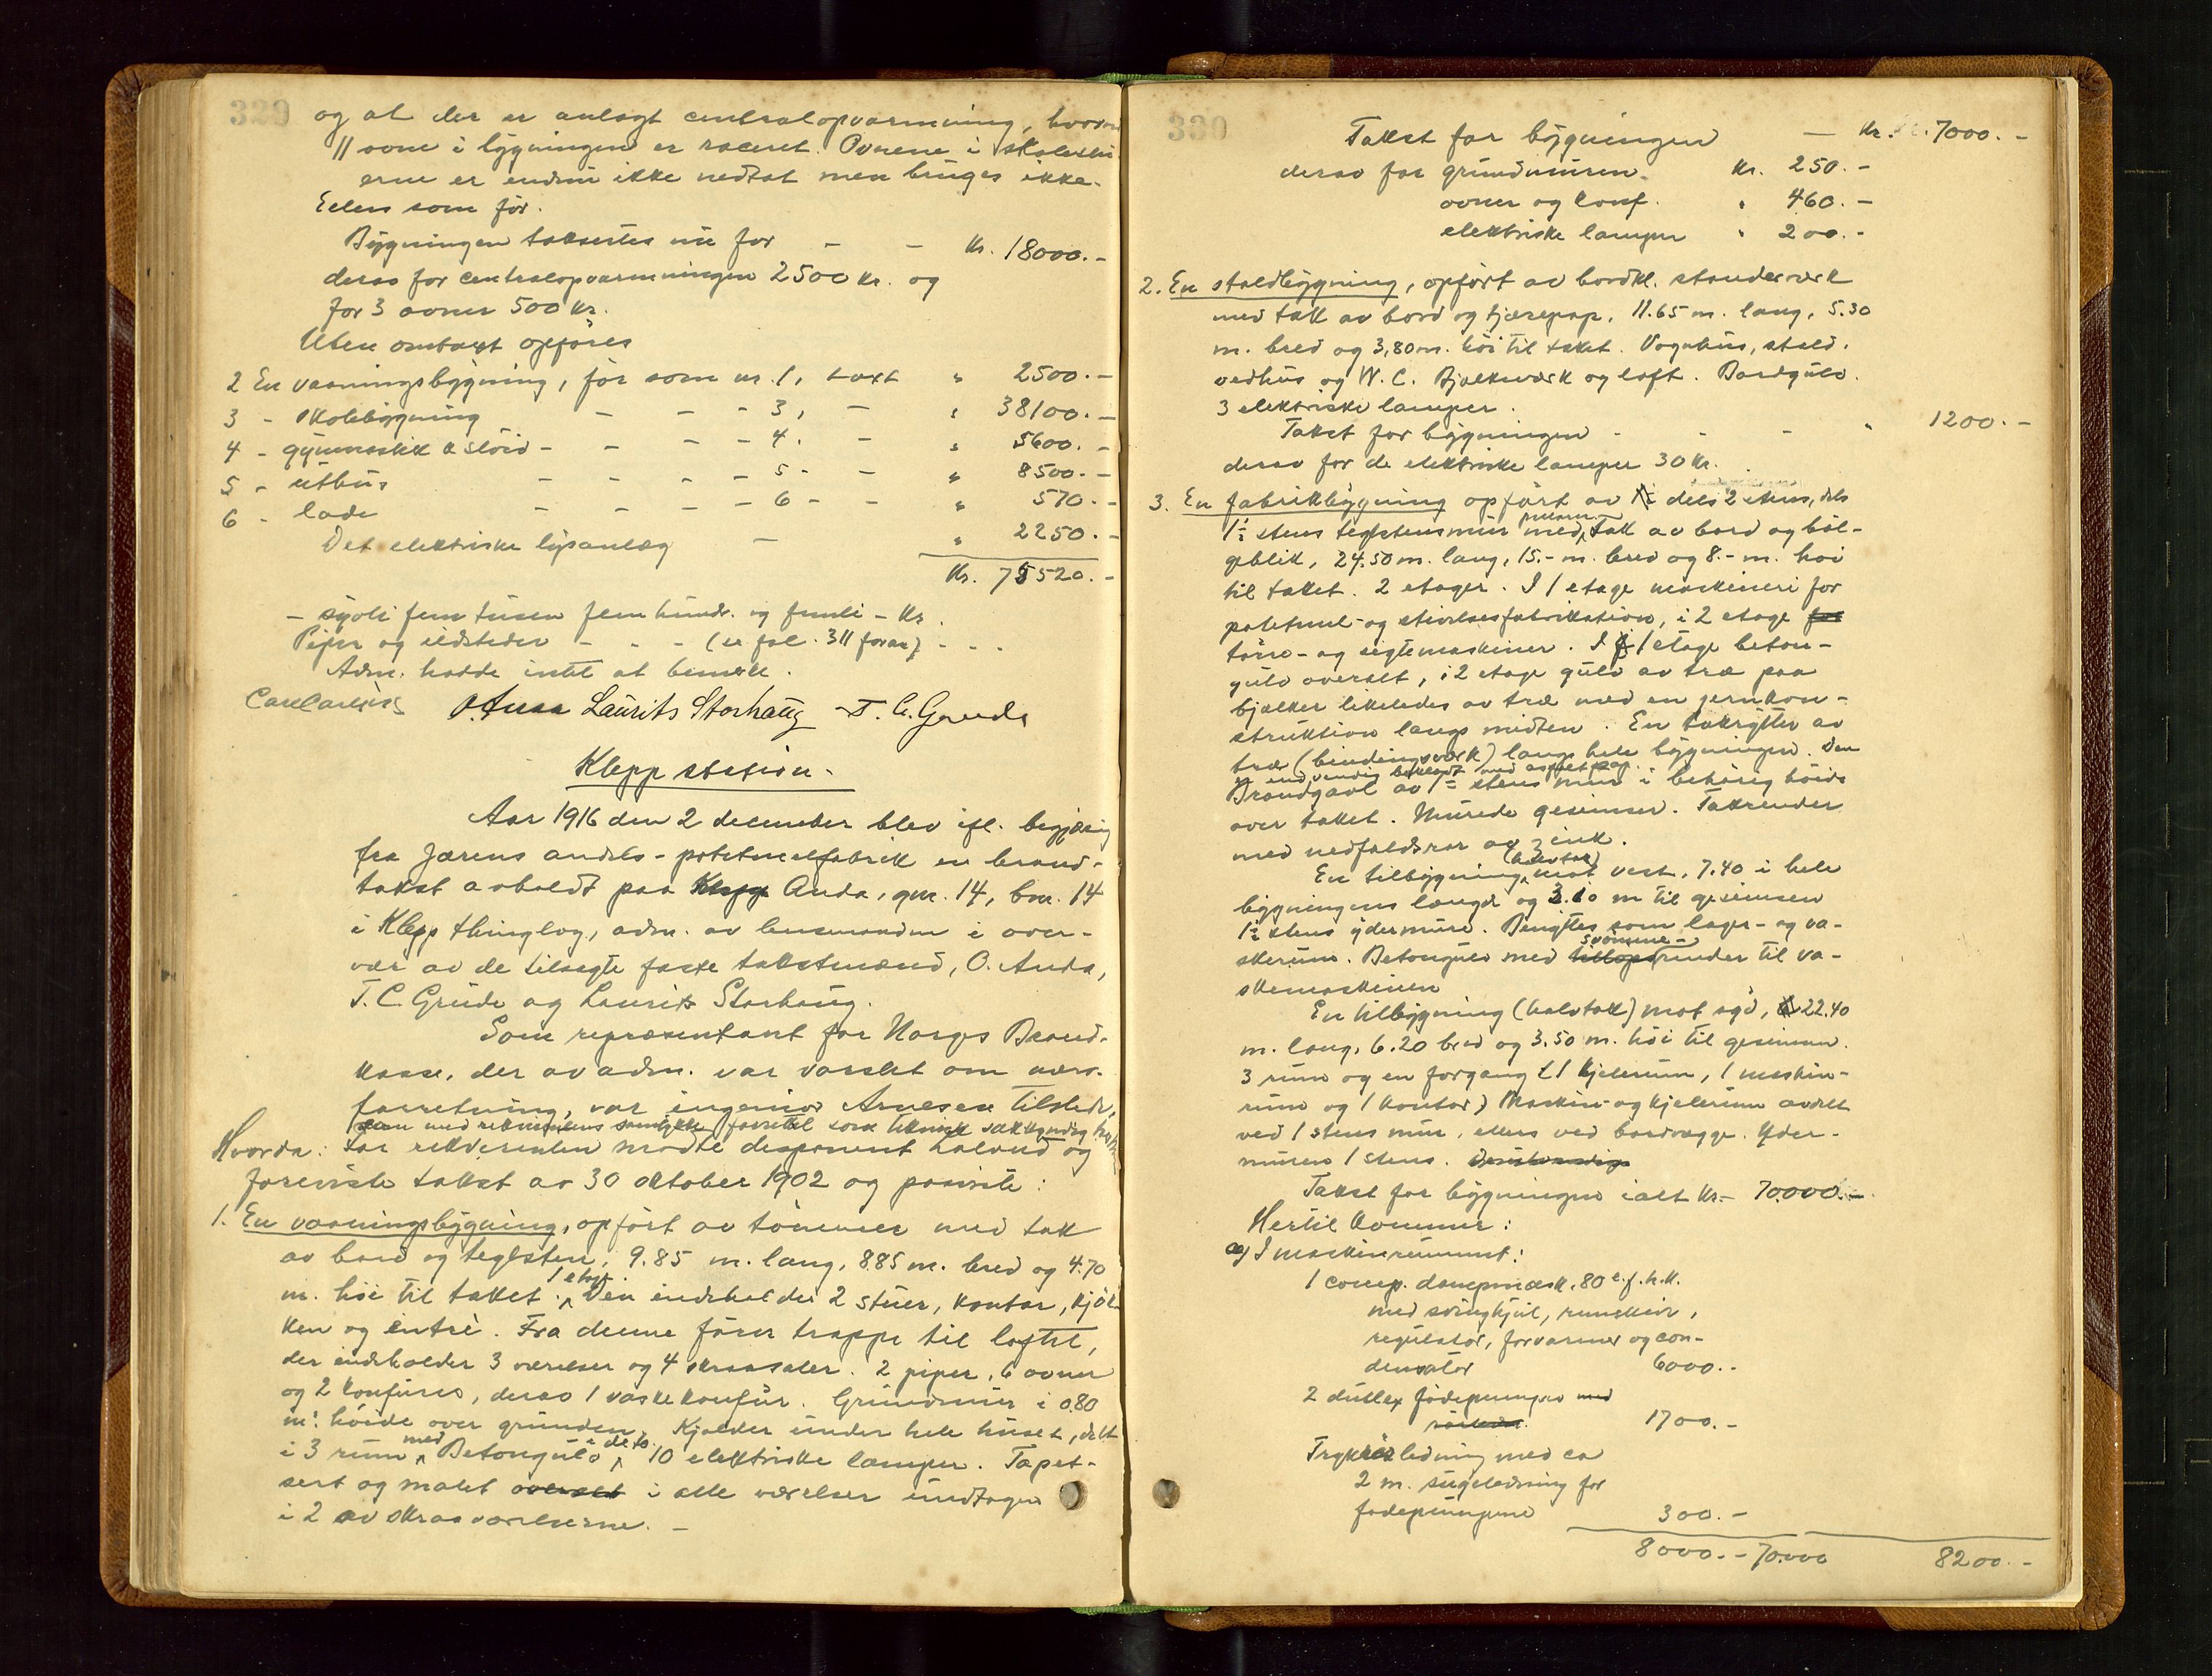 329
og at der er anlagt centralopvarmning, hvorav
11 ovne i bygningen er raceret. Ovnene i skolestu-
erne er endnu ikke nedtat men bruges ikke.
Ellers som før.
Bygningen takseres nu for - - Kr. 18000.-
derav for centralopvarmningen 2500 kr. og
for 3 ovner 500 kr.
Uten omtaxt opføres
2 En vaaningsbygning, før som nr. 1, taxt " 2500.-
3 - skolebygning - - - 3, - " 38100.-
4 - gymnastikk & sløid - - - - 4. - " 5600.-
5 - uthus - - - - 5 - - " 8500.-
6 - lade - - - - 6 - - " 570.-
Det elektriske lysanlæg - " 2250.-
Kr. 75520.-
- sytti fem tusen fem hundr. og - Kr.
Piper og ildsteder - - - (se fol. 311 foran) - - -
Adm. hadde intet at bemerke.
O. Anda Laurits Storhaug T. C. Grude
Klepp station.
Aar 1916 den 2 december blev ifl. begjæring
fra Jærens andels-potetmelfabrik en brand-
takst avholdt paa Klepp Anda, gnr. 14, bnr. 14
i Klepp thinglag, adm. av lensmanden i over-
vær av de tilsagte faste takstmænd, O. Anda,
T. C. Grude og Laurits Storhaug.
Som repræsentant for Norges Brand-
kasse, der av adm. var varslet om nærv.
forretning, var ingeniør Arnesen tilstede,
som med rekvirentens samtykke forrettet som teknisk sakkyndig
Hvorda: For rekvirenten møtte disponent Salvud og
foreviste takst av 30 oktober 1902 og paaviste:
1. En vaaningsbygning, opført av tømmer med tak
av bord og teglsten, 9.85 m. lang, 8.85 m. bred og 4.70
m. høi til taket. 1 etage Den indeholder 2 stuer, kontor, kjøk-
ken og entrè. Fra denne fører trappe til loftet,
der indeholder 3 værelser og 4 skraasaler. 2 piper, 6 ovner
og 2 komfurer, derav 1 vaskekomfur. Grundmur i 0.80
m. høide over grunden. Kjælder under hele huset, delt
i 3 rum med Betongulv i dets. 10 elektriske lamper. Tapet-
sert og malet overalt i alle værelser undtagen
i 2 av skraaværelserne. -
330
Takst for bygningen - Kr. 7000.-
derav for grundmuren. Kr. 250.-
ovner og komf. " 460.-
elektriske lamper " 200.-
2. En staldbygning, opført av bordkl. stenderverk
med tak av bord og tjærepap, 11.65 m. lang, 5.30
m. bred og 3,80 m. høi til taket. Vognhus, stald,
vedhus og W. C. Bjelkeværk og loft. Bordgulv.
3 elektriske lamper.
Takst for bygningen - - - " 1200.-
derav for de elektriske lamper 30 kr.
3. En fabrikbygning opført av dels 2 stens, dels
1½ stens teglstensmur med tak av bord og bøl-
geblik, 24.50 m. lang, 15.- m. bred og 8.- m. høi
til taket. 2 etager. I 1 etage maskineri for
potetmel- og stivelsesfabrikation, i 2 etage for
tørre- og sigtemaskiner. I 1 etage beton-
gulv overalt, i 2 etage gulv av træ paa
bjælker likeledes av træ med en jernkon-
struktion langs midten. En takrytter av
træ (bindingsverk) langs hele bygningen. Den
er indvendig beklædt med asfaltpap.
Brandgavl av 1½ stens mur i behørig høide
over taket. Murede gesimser. Takrender
med nedfaldsrør av zink.
En tilbygning (halvtak) mot vest, 7.40 i hele
bygningens længde og 3.10 m til gesimsen
1½ stens ydermure. Benyttes som lager- og va-
skerum. Betongulv med tilløps svømme-render til va-
skemaskinen
En tilbygning (halvtak) mot syd, 22.40
m. lang, 6.20 bred og 3.50 m. høi til gesimsen.
3 rum og en forgang (1 kjelerum, 1 maskin-
rum og 1 kontor) Maskin- og kjelerum avdelt
ved 1 stens mur, ellers ved bordvægge. Yder-
muren 1 stens.
Takst for bygningen ialt Kr.- 70000.-
Hertil kommer:
a) I maskinrummet:
1 comp. dampmask. 80 e.f.h.k.
med svinghjul, remskive,
regulator, forvarmer og con-
densator 6000.-
2 dullex fødepumper med
rørledn. 1700.-
Trykrørledning med ca
2 m. sugeledning for
fødepumpene 300.-
8000.- 70.000 8200.-